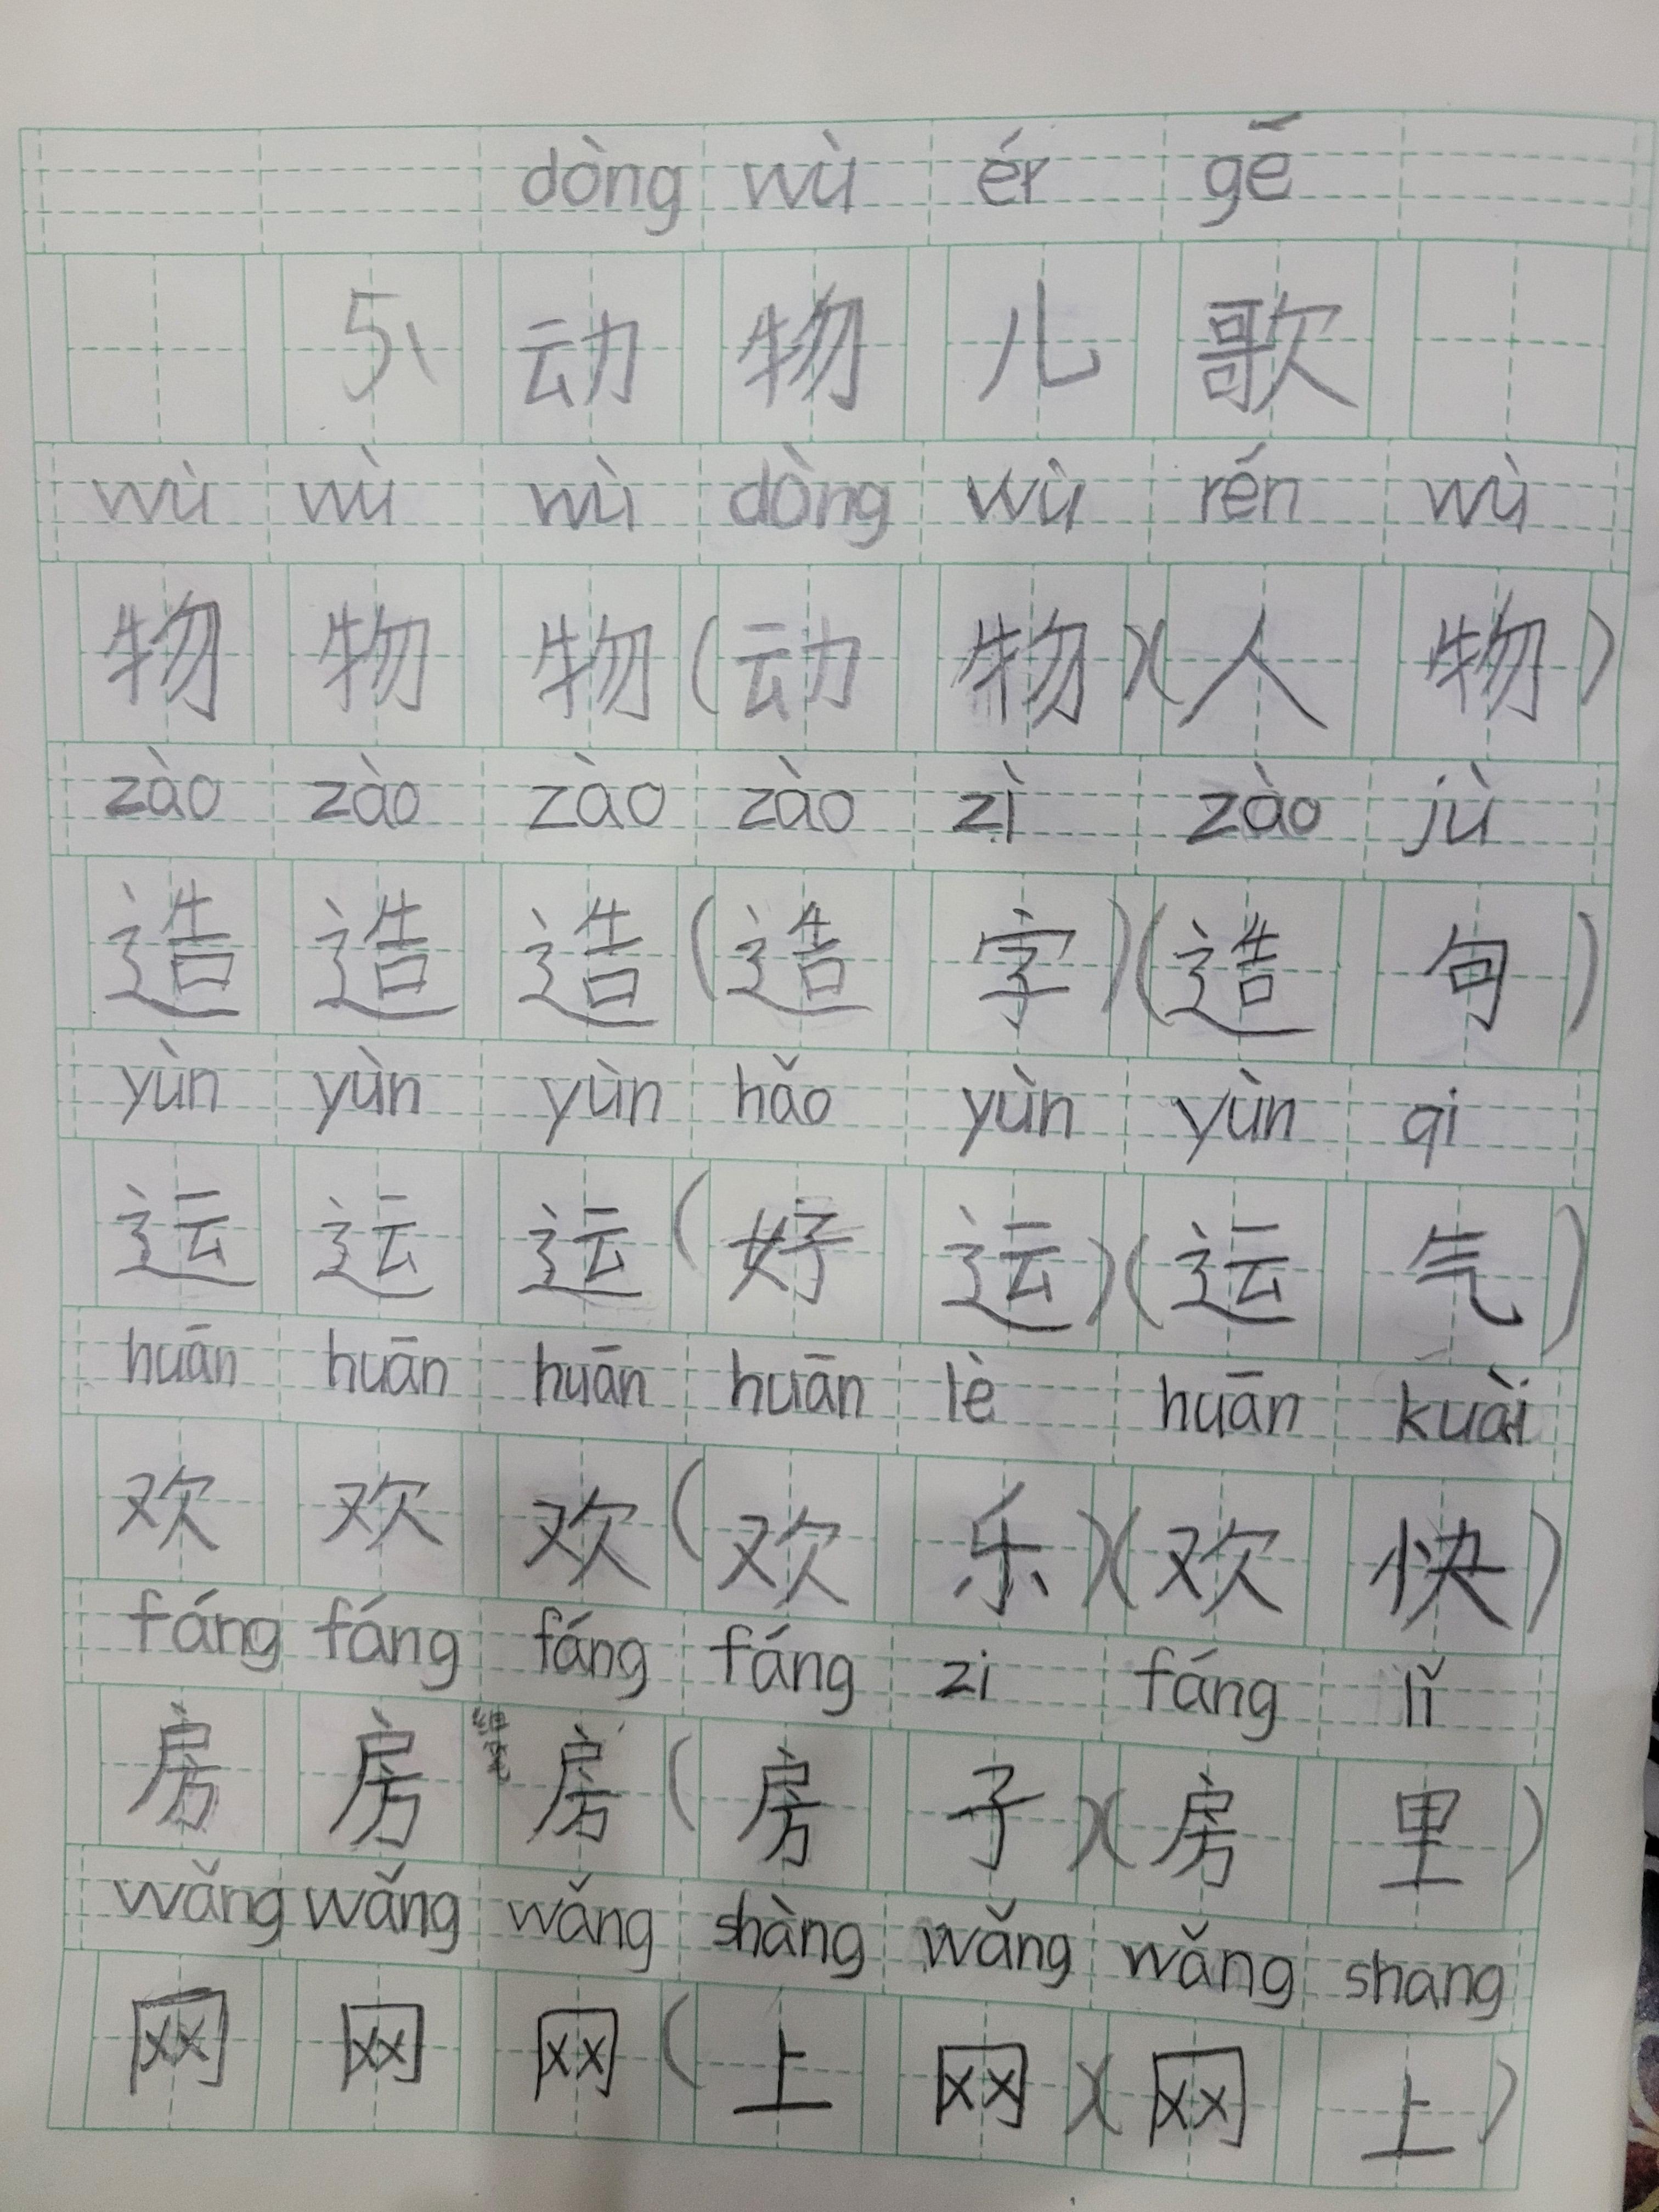 dòng wù ér gē
5、动物儿歌
wù wù wù dòng wù rén wù
物物物(动物)(人物)
zào zào zào zào zì zào jù
造造造(造字)(造句)
yùn yùn yùn hǎo yùn yùn qi
运运运(好运)(运气)
huān huān huān huān lè huān kuài
欢欢欢(欢乐)(欢快)
fáng fáng fáng fáng zi fáng lǐ
房房房(房子)(房里)
wǎng wǎng wǎng shàng wǎng wǎng shang
网网网(上网)(网上)